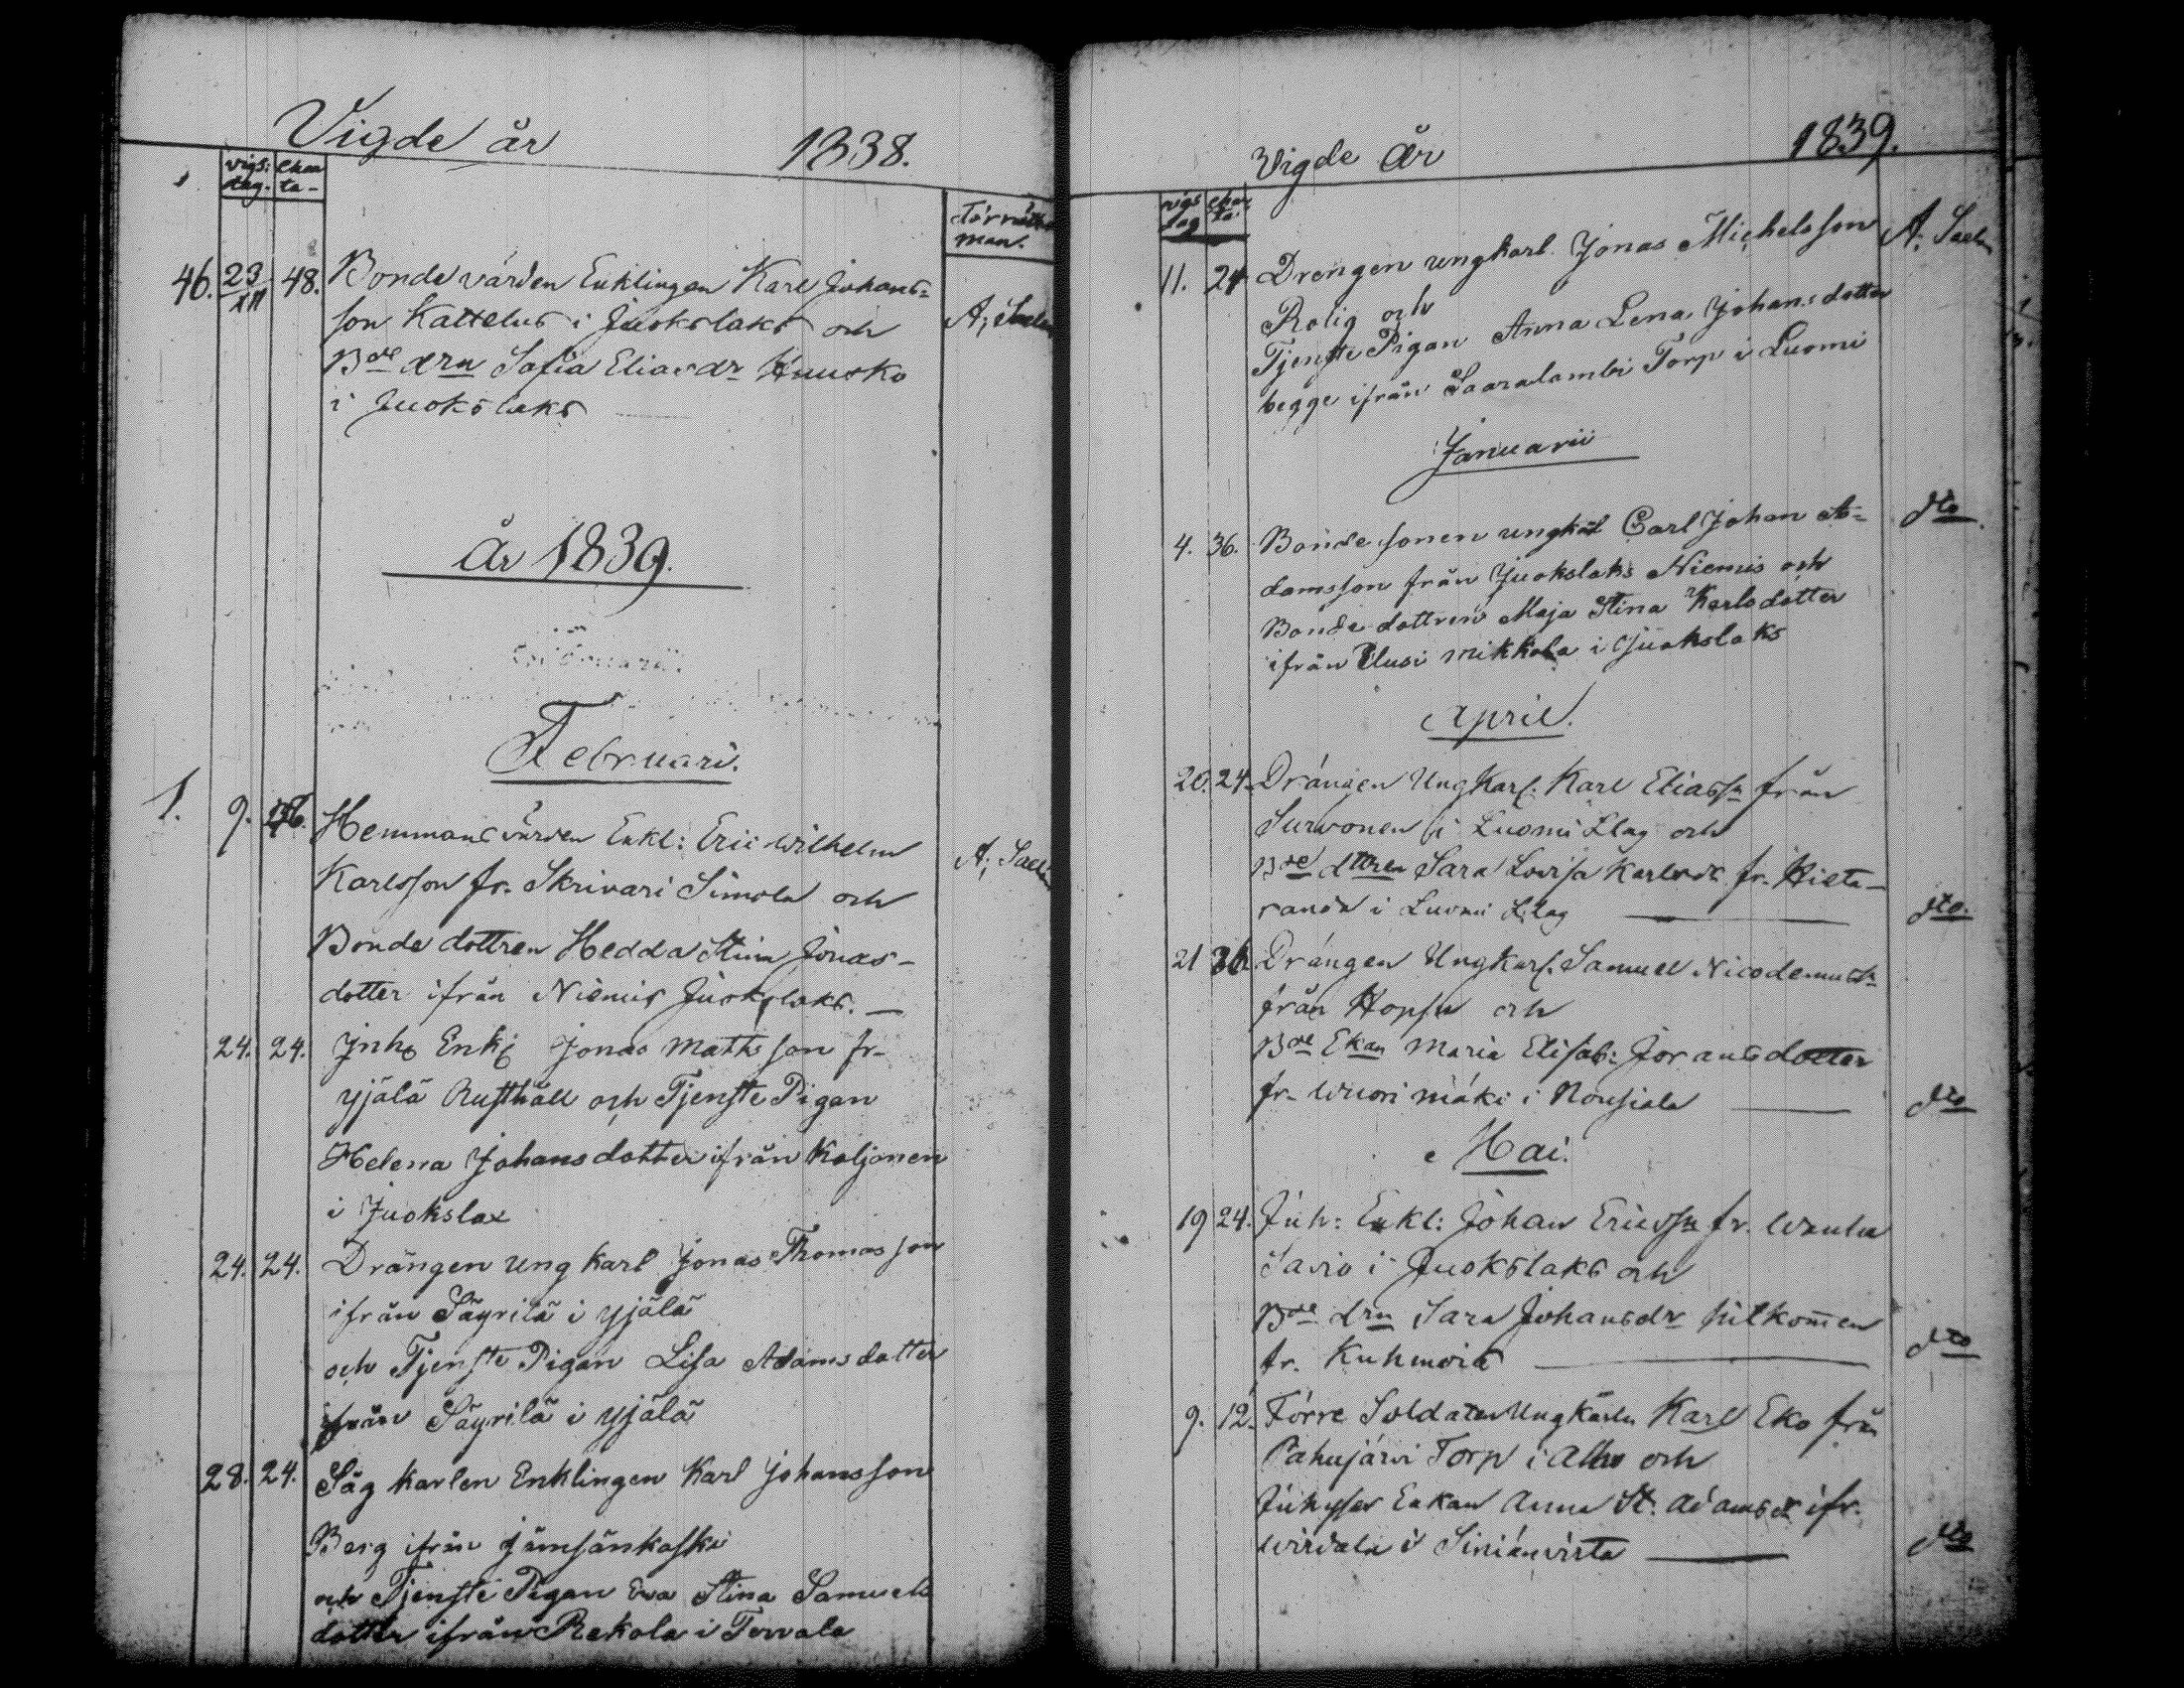 Vigde år 1838.
vigs: dag. Char ta-
Förrättn man.
46. 23/XII 48. Bonde värden Enklingen Karl Johans=
son Kattelus i Juokslaks och A; Saelan
Bde drn Safia Eliasdr Huusko
i Juokslaks
År 1839.
Februari.
1. 9. 46. Hemmansvärden Enkl: Eric Wilhelm
Karlsson fr. Skrivari Simola och A; Saelan
Bonde dottren Hedda Stina Jonas-
dotter ifrån Niemis Juokslaks.
24. 24. Jnh Enkl Jonas Mattsson fr-
yjälä Rusthåll och Tjenste Pigan
Helena Johansdotter ifrån Koljonen
i Juokslax
24. 24. Drängen ung karl Jonas Thomasson
ifrån Säyrilä i yjälä
och Tjenste Pigan Lisa Adamsdotter
ifrån Säyrilä i yjälä
28. 24. Såg karlen Enklingen Karl Johansson
Berg ifrån Jämsänkoski
och Tjenste Pigan Ewa Stina Samuels
dotter ifrån Rekola i Tervala
Vigde År 1839.
vigs dag char ta.
11. 24 Drengen ungkarl Jonas Michelsson A; Saelan
Rolig och
Tjenste Pigan Anna Lena Johansdotter
begge ifrån Saaralambi Torp i Luomi
Januarii
4. 36. Bonde sonen ungkal Carl Johan A= dto
damsson från Juokslaks Niemis och
Bonde dottren Maja Stina Karlsdotter
ifrån Uusi mikkola i Juokslaks
April.
20. 24. Drängen Ungkarl. Karl Eliassn från
Survonen i Luomi Llag och
Bde dttren Sara Lovisa Karlsdr fr. Hieta-
randa i Luomi Llag dto.
21 36 Drängen Ungkarl. Samuel Nicodemussn
från Hopsu och
Bde Ekan Maria Elisab: Joransdotter
fr. Wuori mäki i Rousiala dto
Mai.
19 24. Inh: Enkl: Johan Ericssn fr. Wanha
Savio i Juokslaks och
Bde drn Sara Johansdr hitkom̄en
fr. Kuhmois dto
9. 12. Förre Soldaten Ungkarln Karl Eko från
Pahujärvi Torp i Alho och
Inhyses Enkan Anna St. Adamsdr ifr.
Wirdala i Siniänvirta dto